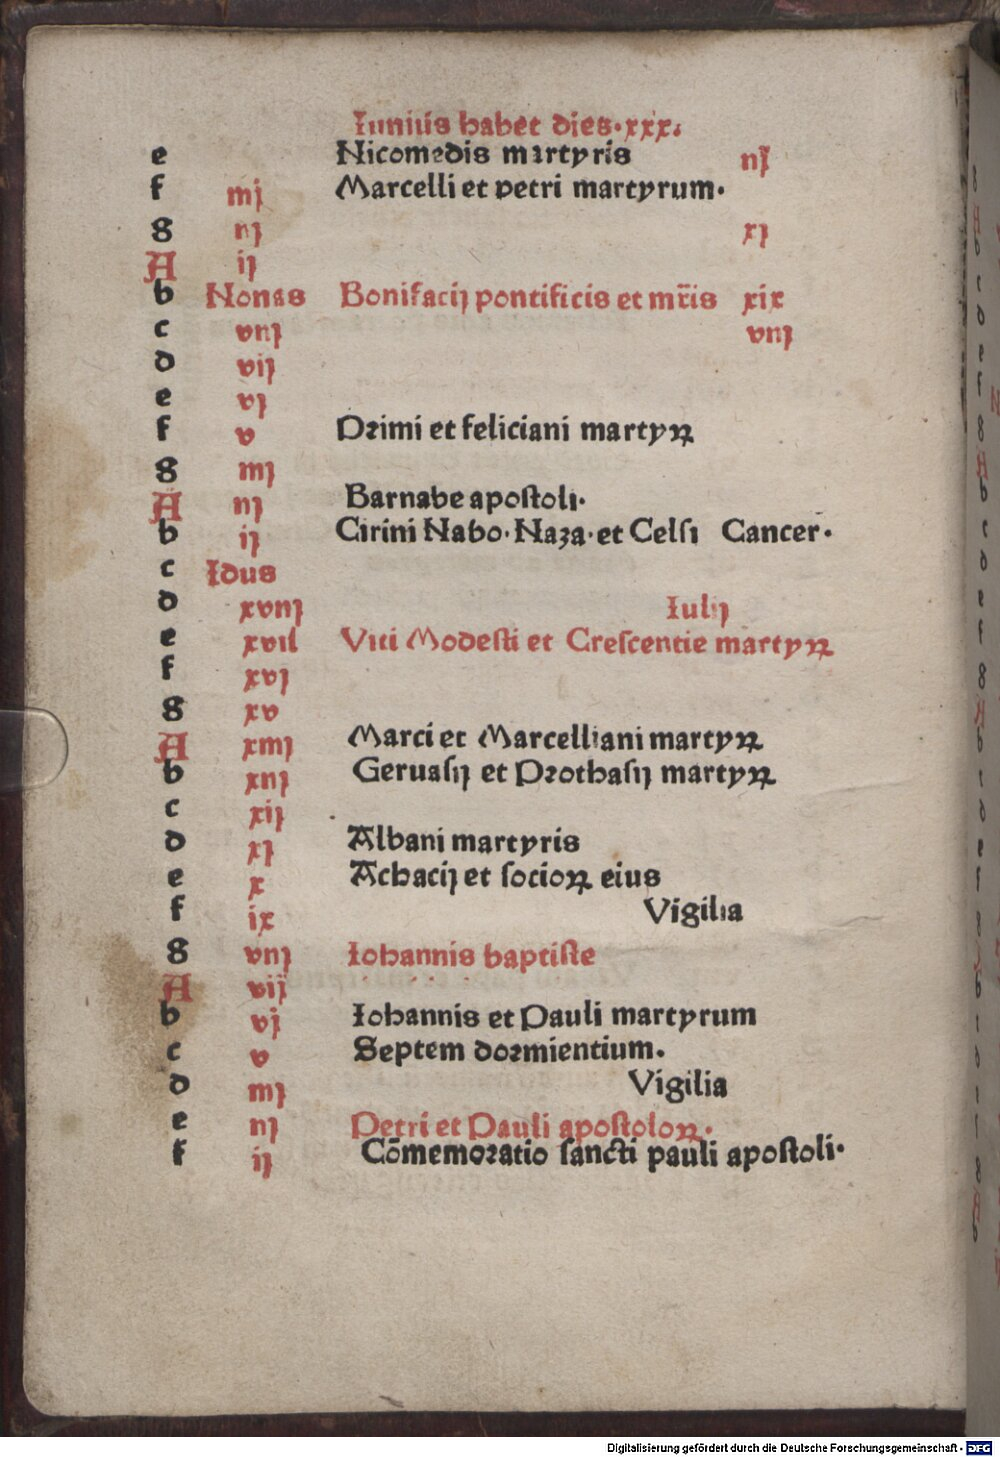 Iunius habet dies·xxx.
e Nicomedis martyris iij
f iiij Marcelli et petri martyrum·
g iij xj
A ij
b Nonas Bonifacij pontificis et mr̄is xix
c viij viij
d vij
e vj
f v Primi et feliciani martyꝝ
g iiij
A iij Barnabe apoſtoli·
b ij Cirini Nabo·Naza·et Celſi Cancer·
c Idus
d xviij Iulij
e xvij Viti Modeſti et Creſcentie martyꝝ
f xvj
g xv
A xiiij Marci et Marcelliani martyꝝ
b xiij Geruaſij et Prothaſij martyꝝ
c xij
d xj Albani martyris
e x Achacij et ſocioꝝ eius
f ix Vigilia
g viij Iohannis baptiſte
A vij
b vj Iohannis et Pauli martyrum
c v Septem dormientium.
d iiij Vigilia
e iij Petri et Pauli apoſtoloꝝ·
f ij Cōmemoratio ſancti pauli apoſtoli·
Digitalisierung gefördert durch die Deutsche Forschungsgemeinschaft - DFG